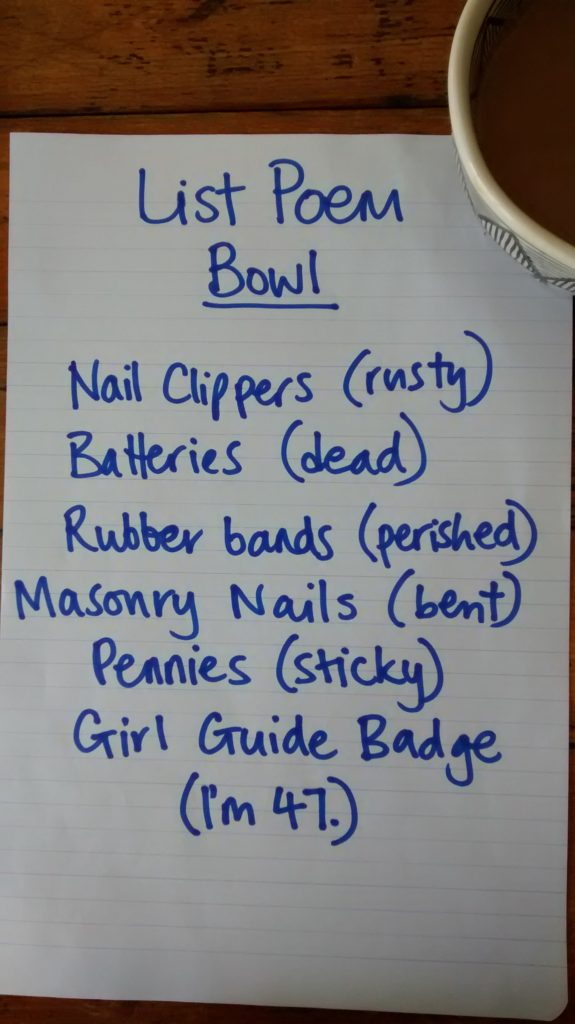 List Poem
Bowl
Nail Clippers (rusty)
Batteries (dead)
Rubber bands (perished)
Masonry Nails (bent)
Pennies (sticky)
Girl Guide Badge
(I'm 47.)